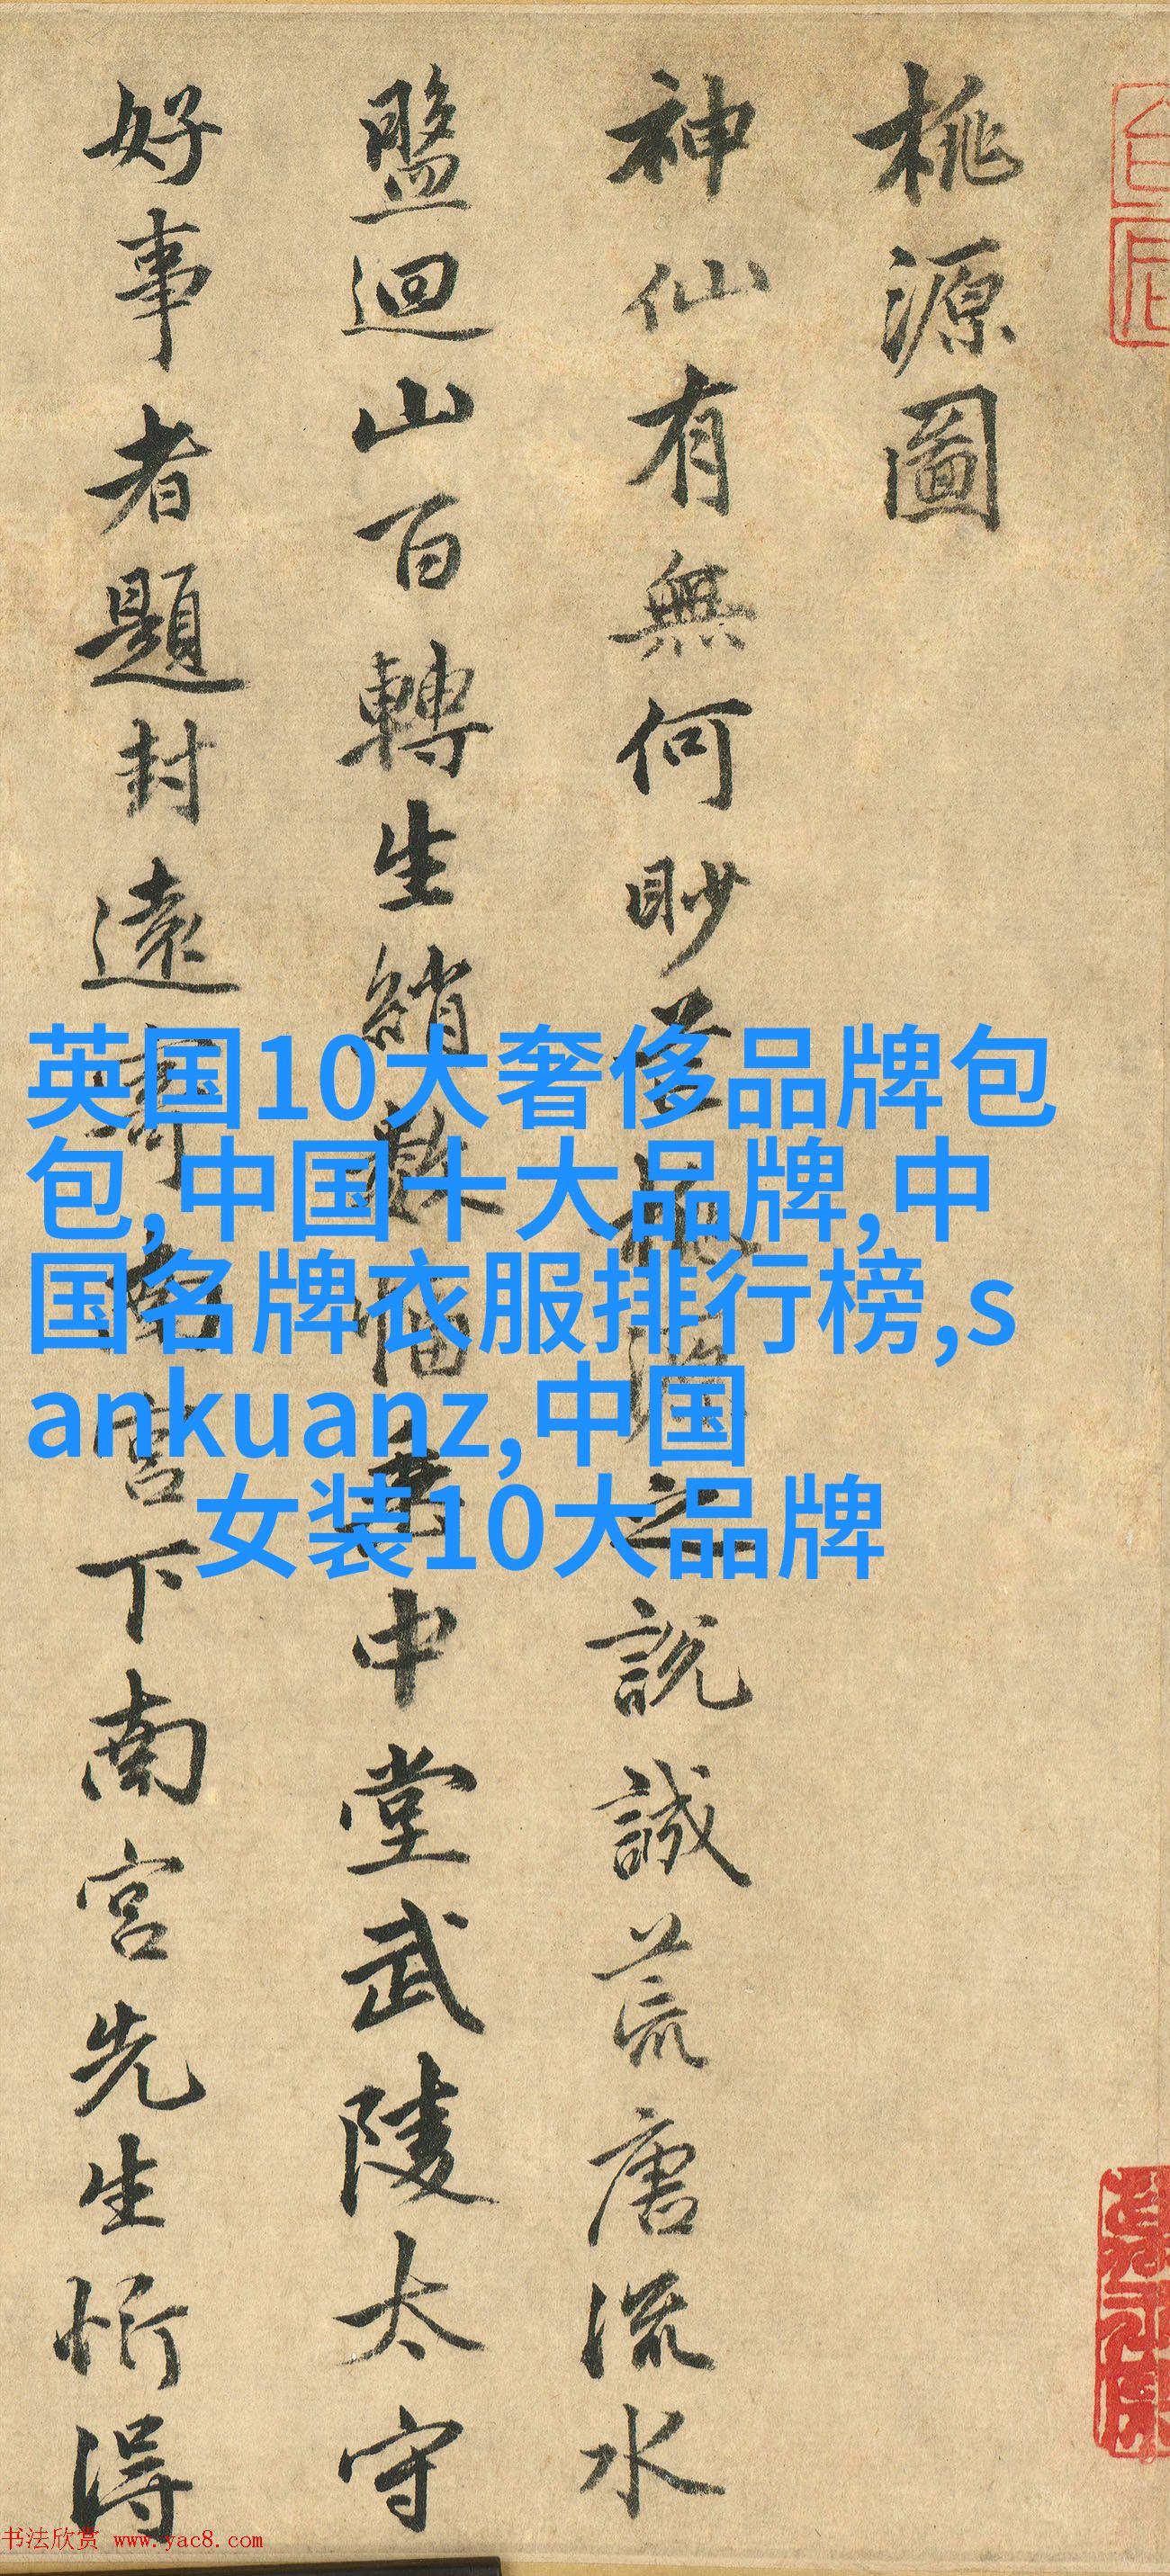 桃源圖
神仙有無何眇芒桃源之說誠荒唐流水
盤迴山百轉生綃數幅垂中堂武陵太守
好事者題封遠寄南宮下南宮先生忻得
英国10大奢侈品牌包
包,中国十大品牌,中
国名牌衣服排行榜,s
ankuanz,中国
女装10大品牌
书法欣赏 www.yac8.com